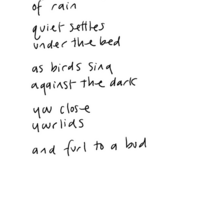 of rain
quiet settles
under the bed
as birds sing
against the dark
you close
your lids
and furl to a bud